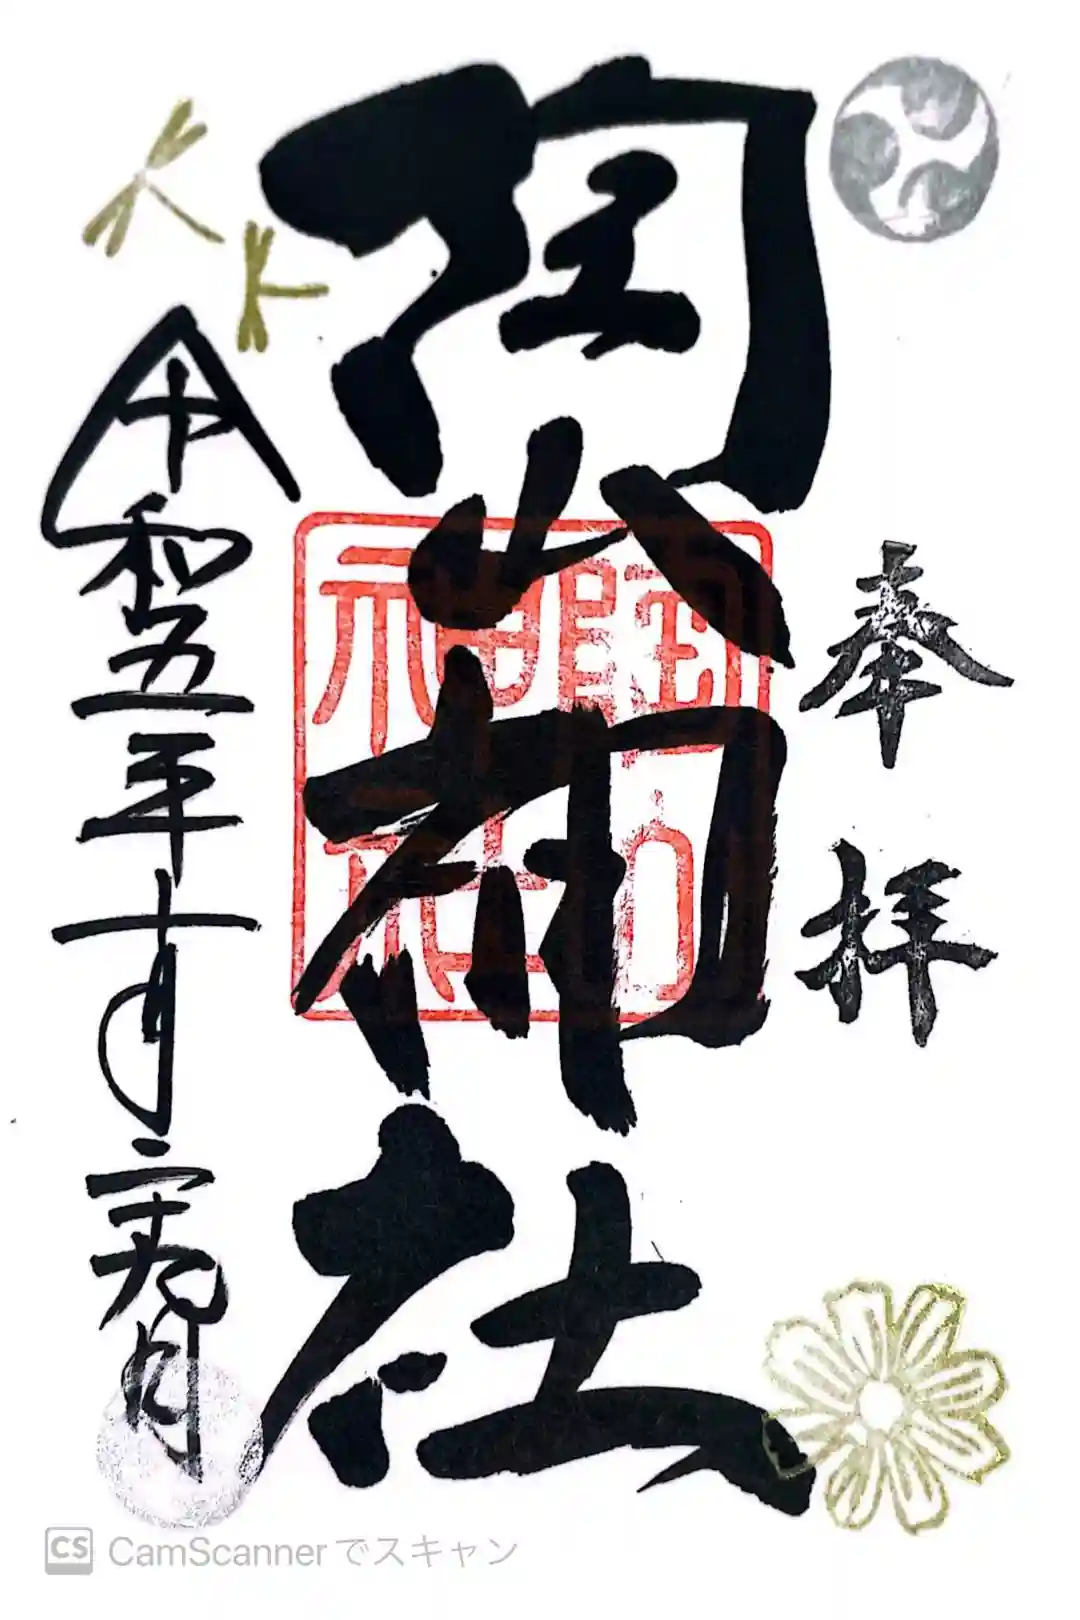 奉拝
陶山神社
令和五年十月二十九日
陶山
神社
CS CamScannerでスキャン